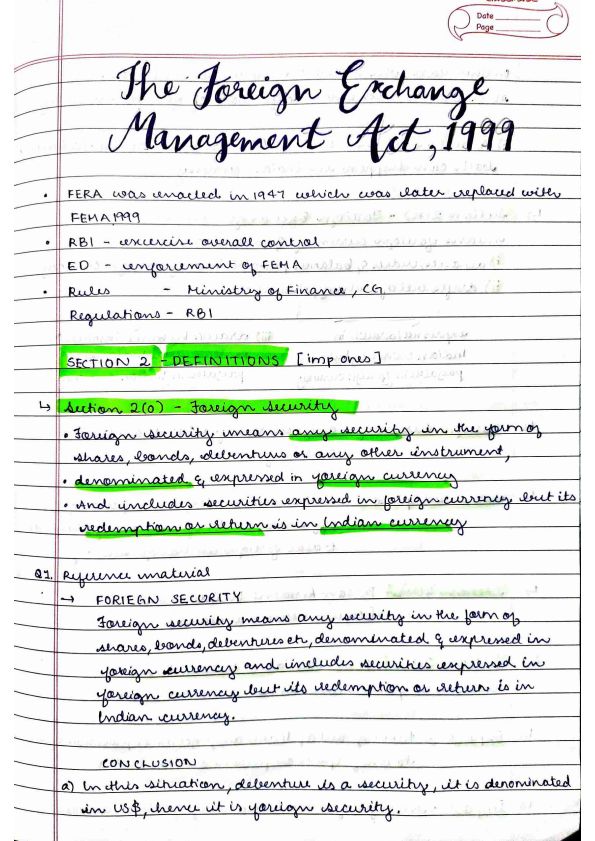 Date
Page
The Foreign Exchange
Management Act, 1999
• FERA was enacted in 1947 which was later replaced with
FEMA, 1999
• RBI - excercise overall control
ED - enforcement of FEMA
• Rules - Ministry of Finance, CG
Regulations - RBI
SECTION 2 - DEFINITIONS [imp ones]
↳ Section 2(o) - Foreign security
• Foreign security means any security in the form of
shares, bonds, debentures or any other instrument,
• denominated & expressed in foreign currency
• And includes securities expressed in foreign currency but its
redemption or return is in Indian currency
Q1. Reference material
→ FORIEGN SECURITY
Foreign security means any security in the form of
shares, bonds, debentures etc, denominated & expressed in
foreign currency and includes securities expressed in
foreign currency but its redemption or return is in
Indian currency.
CONCLUSION
a) In this situation, debenture is a security, it is denominated
in US$, hence it is foreign security.